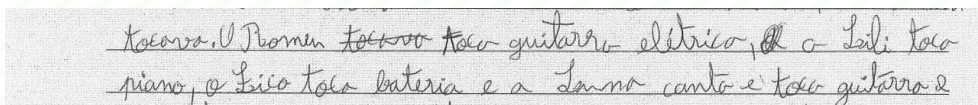 tocava. O Romeu tocava toca guitarra elétrica, a Lili toca
piano, o Zico toca bateria e a Luna canta e toca guitarra e